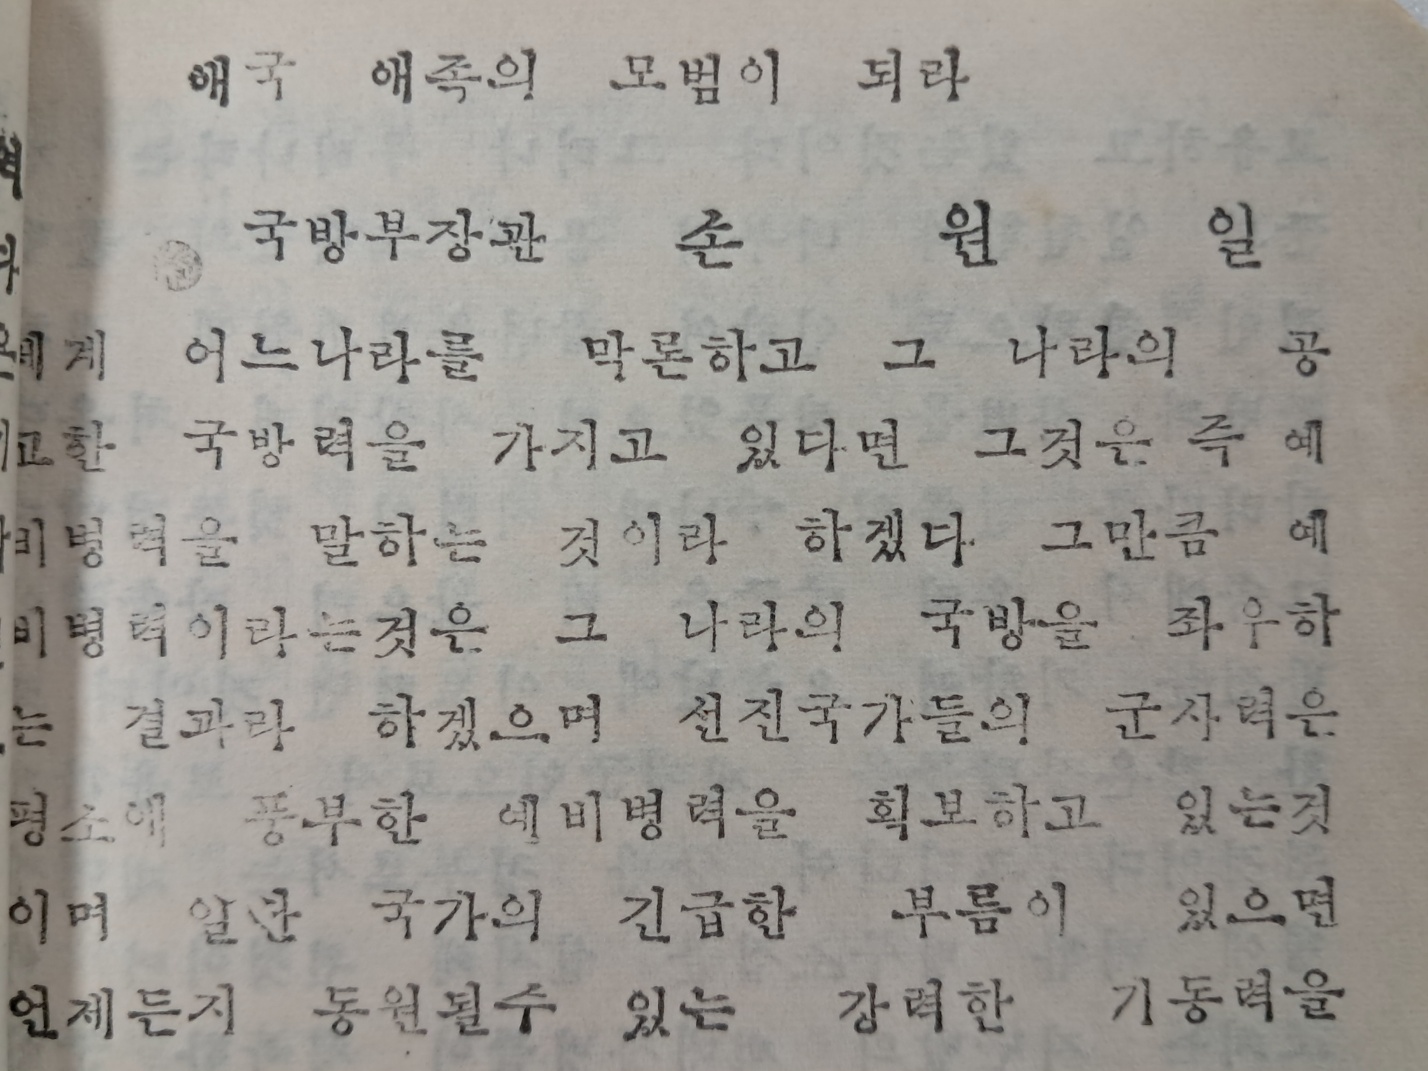 애국 애족의 모범이 되라
국방부장관 손 원 일
게 어느나라를 막론하고 그 나라의 공
고한 국방력을 가지고 있다면 그것은 즉 예
비병력을 말하는 것이라 하겠다 그만큼 예
비병력이라는것은 그 나라의 국방을 좌우하
는 결과라 하겠으며 선진국가들의 군사력은
평소에 풍부한 예비병력을 획보하고 있는것
이며 일단 국가의 긴급한 부름이 있으면
언제든지 동원될수 있는 강력한 기동력을